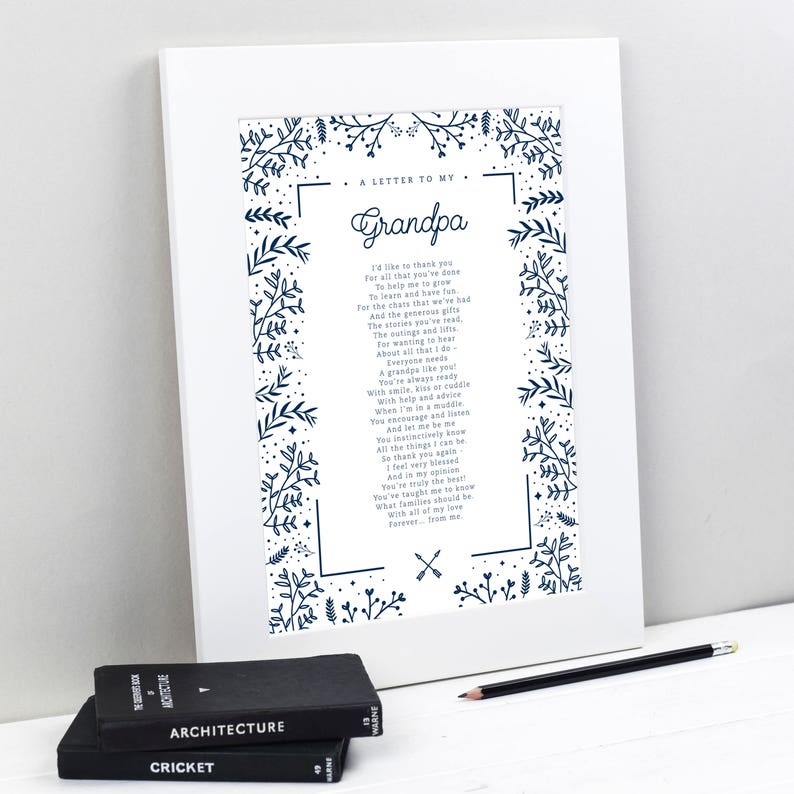 A LETTER TO MY
Grandpa
I'd like to thank you
For all that you've done
To help me to grow
To learn and have fun.
For the chats that we've had
And the generous gifts
The stories you've read,
The outings and lifts.
For wanting to hear
About all that I do –
Everyone needs
A grandpa like you!
You're always ready
With smile, kiss or cuddle
With help and advice
When I'm in a muddle.
You encourage and listen
And let me be me
You instinctively know
All the things I can be.
So thank you again -
I feel very blessed
And in my opinion
You're truly the best!
You've taught me to know
What families should be.
With all of my love
Forever... from me.
THE OBSERVER'S BOOK
OF
ARCHITECTURE
ARCHITECTURE
13
WARNE
CRICKET
49
WARNE